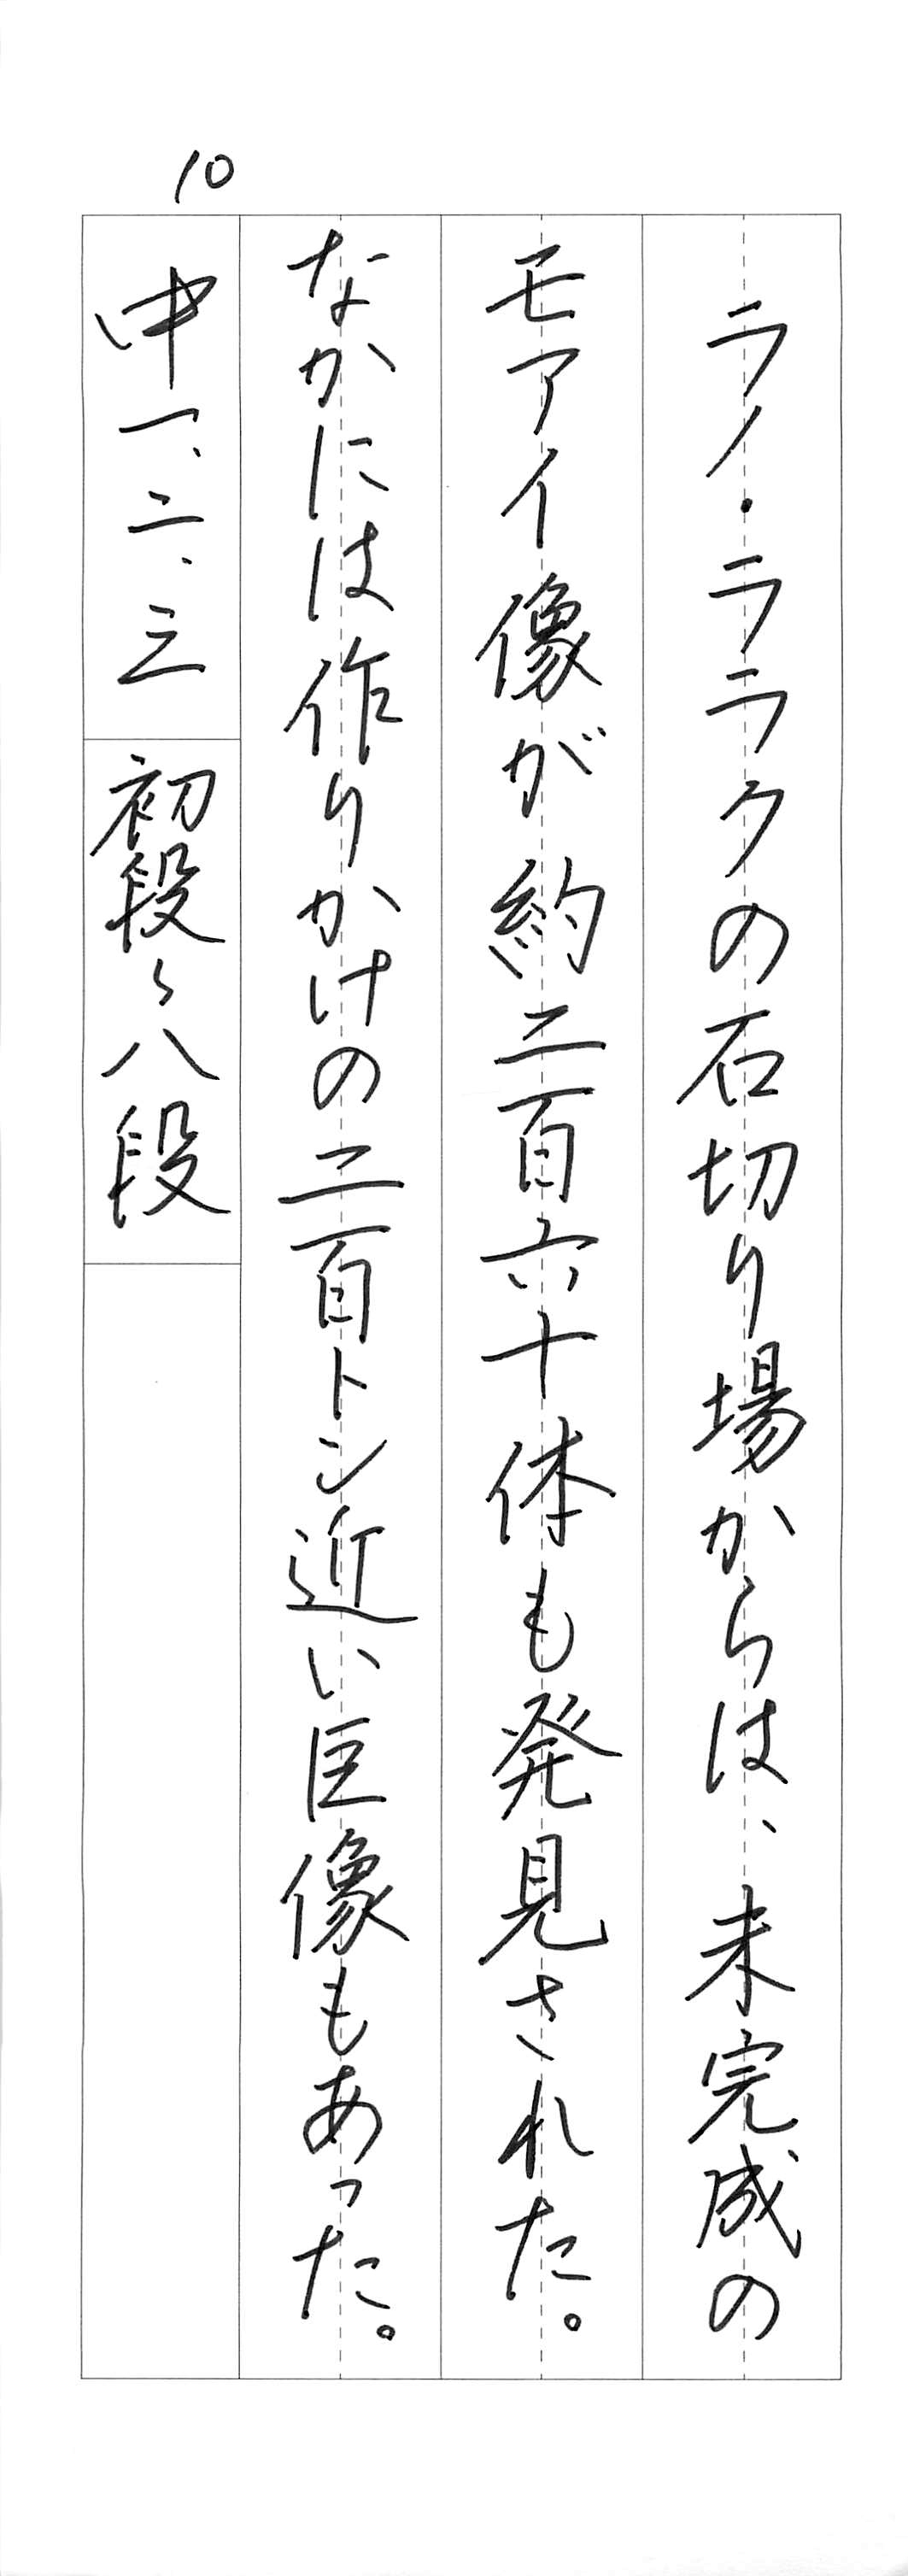 ラノ・ララクの石切り場からは、未完成の
モアイ像が約二百六十体も発見された。
なかには作りかけの二百トン近い巨像もあった。
10
中一、二、三
初段〜八段